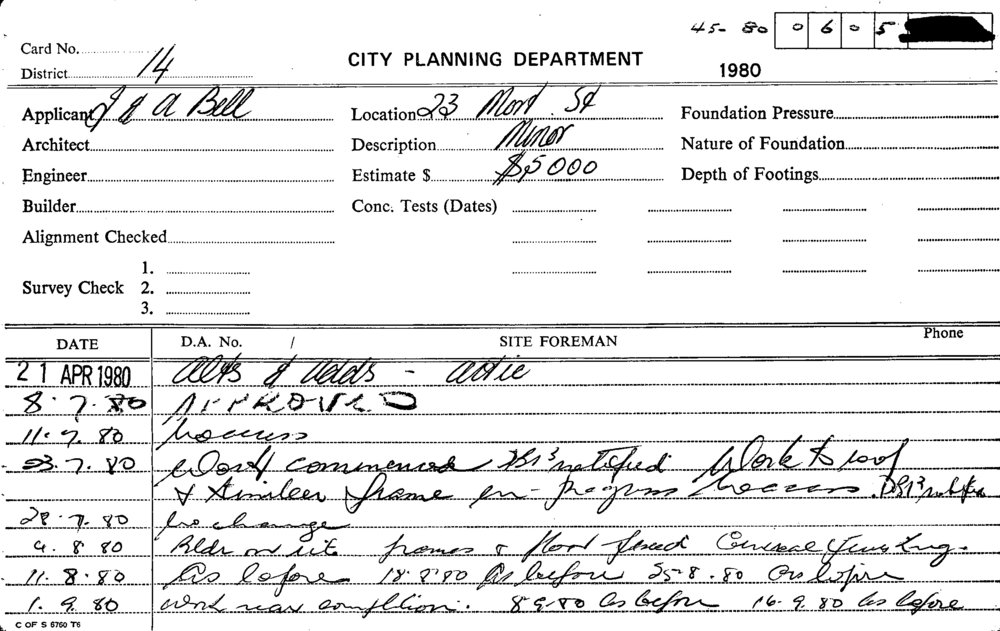 45-80 0605
Card No.
District 14
CITY PLANNING DEPARTMENT
1980
Applicant J & A Bell
Location 23 Mort St
Foundation Pressure
Architect
Description Minor
Nature of Foundation
Engineer
Estimate $ $5000
Depth of Footings
Builder
Conc. Tests (Dates)
Alignment Checked
Survey Check
1.
2.
3.
DATE D.A. No. / SITE FOREMAN Phone
21 APR 1980 Alts & Adds - attic
8.7.80 APPROVED
11.7.80 No access
23.7.80 Work commenced notified Work to roof
& timber frame in progress No access
28.7.80 No change
4.8.80 Bldr on site frames & floor fixed General
11.8.80 As before 18.8.80 As before 25.8.80 As before
1.9.80 Work near completion. 8.9.80 As before 16.9.80 As before
C OF S 6760 T6